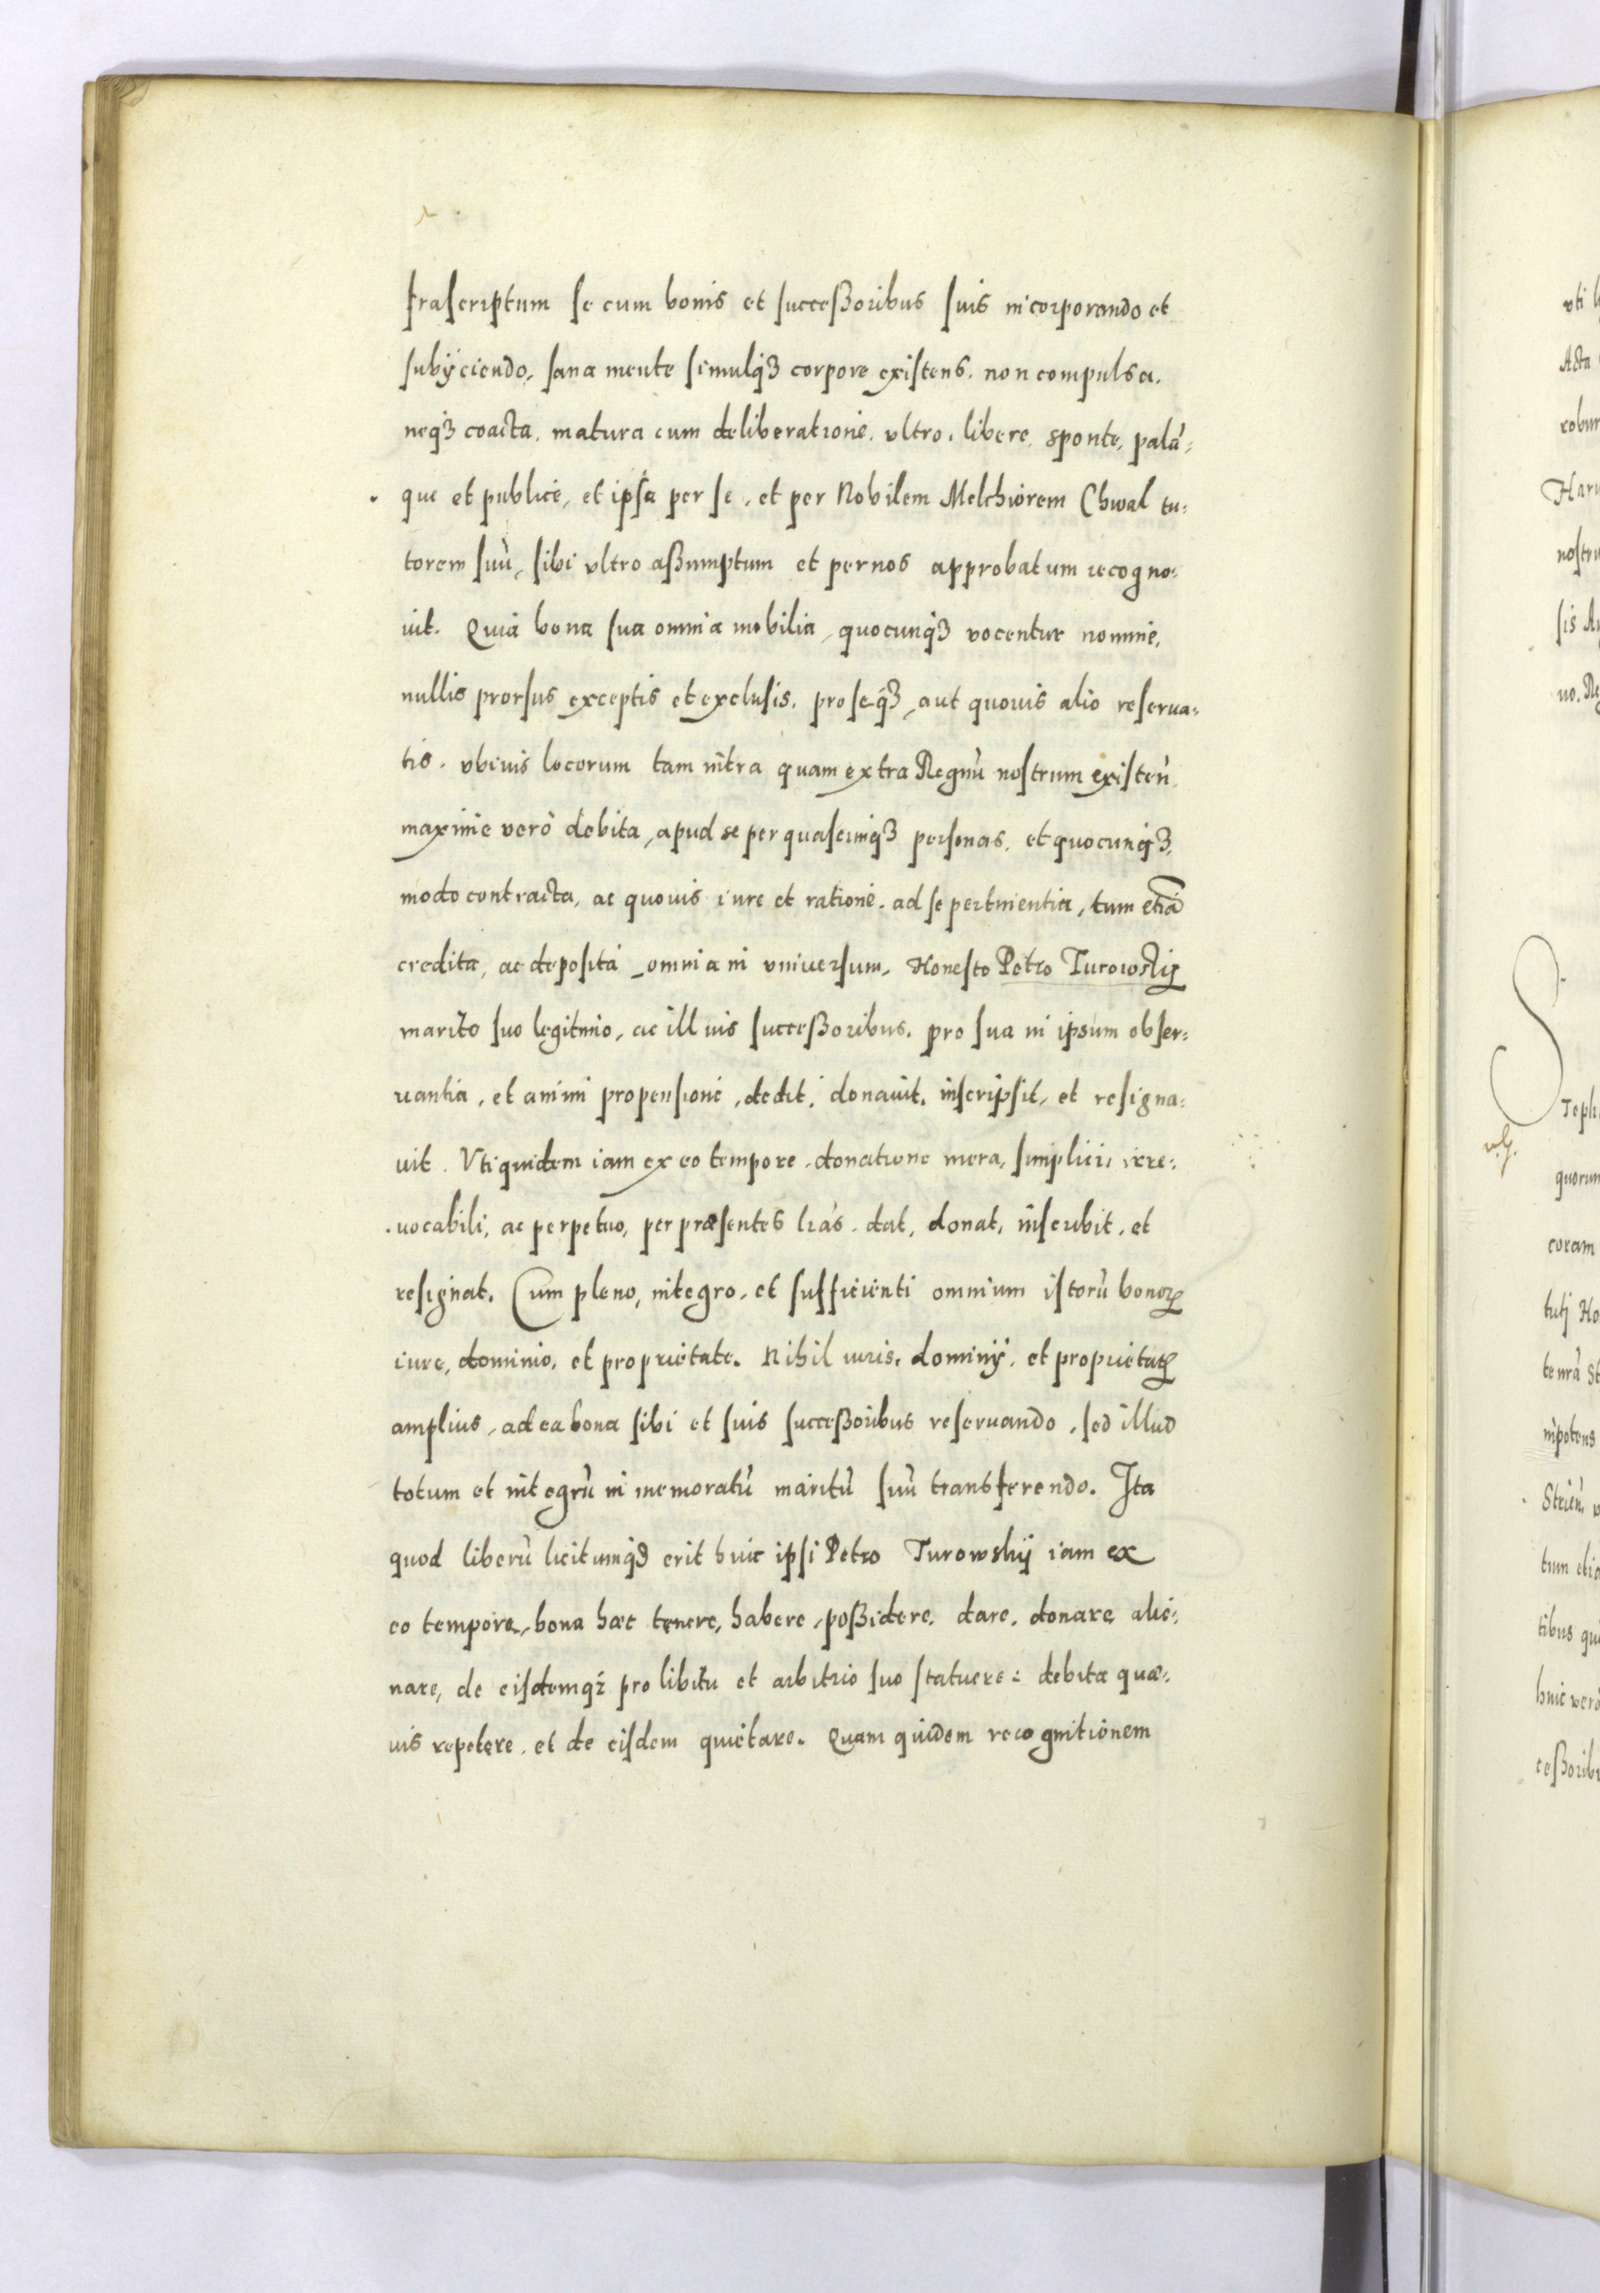 frascriptum se cum bonis et succeßoribus suis incorporando et
subÿciendo, sana mente simulqȝ corpore existens, non compulsa,
neqȝ coacta, matura cum deliberatione, vltro, libere, sponte, palà-
que et publice, et ipsa per se, et per Nobilem Melchiorem Chwal tu-
torem suù, sibi vltro aßumptum et per nos approbatum recogno-
uit. Quia bona sua omnia mobilia, quocunqȝ vocentur nomine,
nullis prorsus exceptis et exclusis, pro seqȝ, aut quouis alio reserua-
tis, vbiuis locorum tam intra quam extra Regnù nostrum existeǹ.
maxime verò debita, apud se per quascunqȝ personas, et quocunqȝ
modo contracta, ac quouis iure et ratione, ad se pertinentia, tum etiā
credita, ac deposita, omnia in vniuersum, Honesto Petro Turowskij
marito suo legitimo, ac illuis succeßoribus, pro sua in ipsum obser-
uantia, et animi propensione, dedit, donauit, inscripsit, et resigna-
uit. Vti quidem iam ex eo tempore, donatione mera, simplici, irre-
uocabili, ac perpetuo, per præsentes lràs, dat, donat, inscribit, et
resignat. Cum pleno, integro, et sufficienti omnium istorù bonoꝝ
iure, dominio, et proprietate. Nihil iuris, dominÿ, et proprietatꝭ
amplius, ad ea bona sibi et suis succeßoribus reseruando, sed illud
totum et integrù in memoratù maritù suù transferendo. Ita
quod liberù licitumqȝ erit huic ipsi Petro Turowskij iam ex
eo tempore, bona hæc tenere, habere, poßidere, dare, donare, alie-
nare, de eisdemqȝ pro libitu et arbitrio suo statuere: debita quæ-
uis repetere, et de eisdem quietare. Quam quidem recognitionem